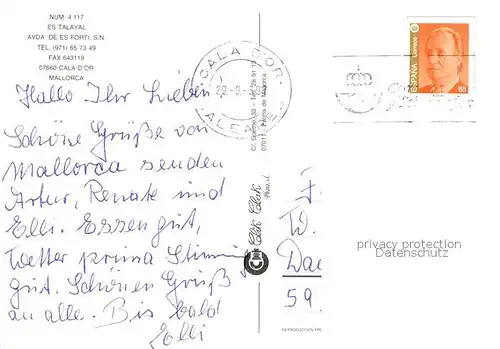 NUM 4 117
ES TALAYAL
AVDA DE ES FORTI, S/N
TEL. (971) 65 73 49
FAX 643119
07660 CALA D'OR
MALLORCA
Hallo Ihr Lieben
Schöne Grüße von
Mallorca senden
Artur, Renate und
Elli. Essen gut,
Wetter prima Stimmung
gut. Schönen Gruß
an alle. Bis bald
Elli
CALA D'OR
BALEARES
Click Clak
07011 Palma de Mallorca
REPRODUCCION PRO
ESPAÑA
Correos
65
F.
W.
Da
59.
privacy protection
Datenschutz